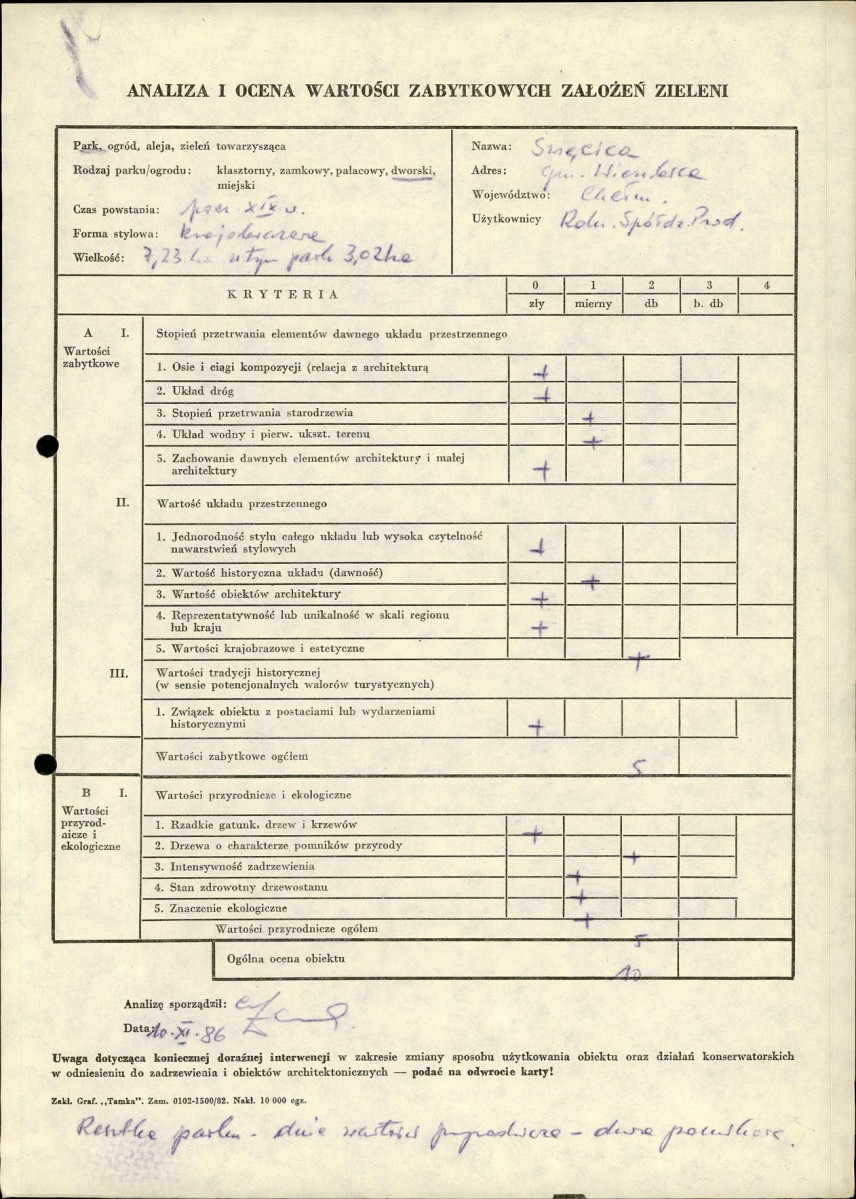 ANALIZA I OCENA WARTOŚCI ZABYTKOWYCH ZAŁOŻEŃ ZIELENI
Park, ogród, aleja, zieleń towarzysząca
Rodzaj parku/ogrodu: klasztorny, zamkowy, pałacowy, dworski,
miejski
Czas powstania: pocz. XIX w.
Forma stylowa: krajobrazowa
Wielkość: 7,23 ha w tym park 3,02ha
Nazwa:
Adres: gm.
Województwo: Chełm.
Użytkownicy Roln. Spółdz. Prod.
KRYTERIA
0 1 2 3 4
zły mierny db b. db
A I. Stopień przetrwania elementów dawnego układu przestrzennego
Wartości
zabytkowe
1. Osie i ciągi kompozycji (relacja z architekturą +
2. Układ dróg +
3. Stopień przetrwania starodrzewia +
4. Układ wodny i pierw. ukszt. terenu +
5. Zachowanie dawnych elementów architektury i małej
architektury +
II. Wartość układu przestrzennego
1. Jednorodność stylu całego układu lub wysoka czytelność
nawarstwień stylowych +
2. Wartość historyczna układu (dawność) +
3. Wartość obiektów architektury +
4. Reprezentatywność lub unikalność w skali regionu
lub kraju +
5. Wartości krajobrazowe i estetyczne +
III. Wartości tradycji historycznej
(w sensie potencjonalnych walorów turystycznych)
1. Związek obiektu z postaciami lub wydarzeniami
historycznymi +
Wartości zabytkowe ogółem 5
B I. Wartości przyrodnicze i ekologiczne
Wartości
przyrod-
nicze i
ekologiczne
1. Rzadkie gatunki drzew i krzewów +
2. Drzewa o charakterze pomników przyrody +
3. Intensywność zadrzewienia +
4. Stan zdrowotny drzewostanu +
5. Znaczenie ekologiczne +
Wartości przyrodnicze ogółem 5
Ogólna ocena obiektu 10
Analizę sporządził:
Data: 10.XI.86
Uwaga dotycząca koniecznej doraźnej interwencji w zakresie zmiany sposobu użytkowania obiektu oraz działań konserwatorskich
w odniesieniu do zadrzewienia i obiektów architektonicznych — podać na odwrocie karty!
Zakł. Graf. „Tamka". Zam. 0102-1500/82. Nakł. 10 000 egz.
Resztka parku - duże wartości przyrodnicze -